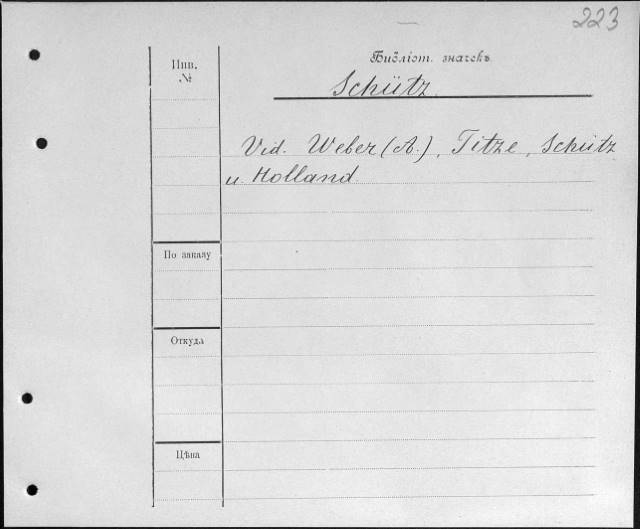 223
Инв.
№
Библіот. значекъ
Schütz
Vid. Weber (A.), Titze, Schütz
u. Holland
По заказу
Откуда
Цѣна